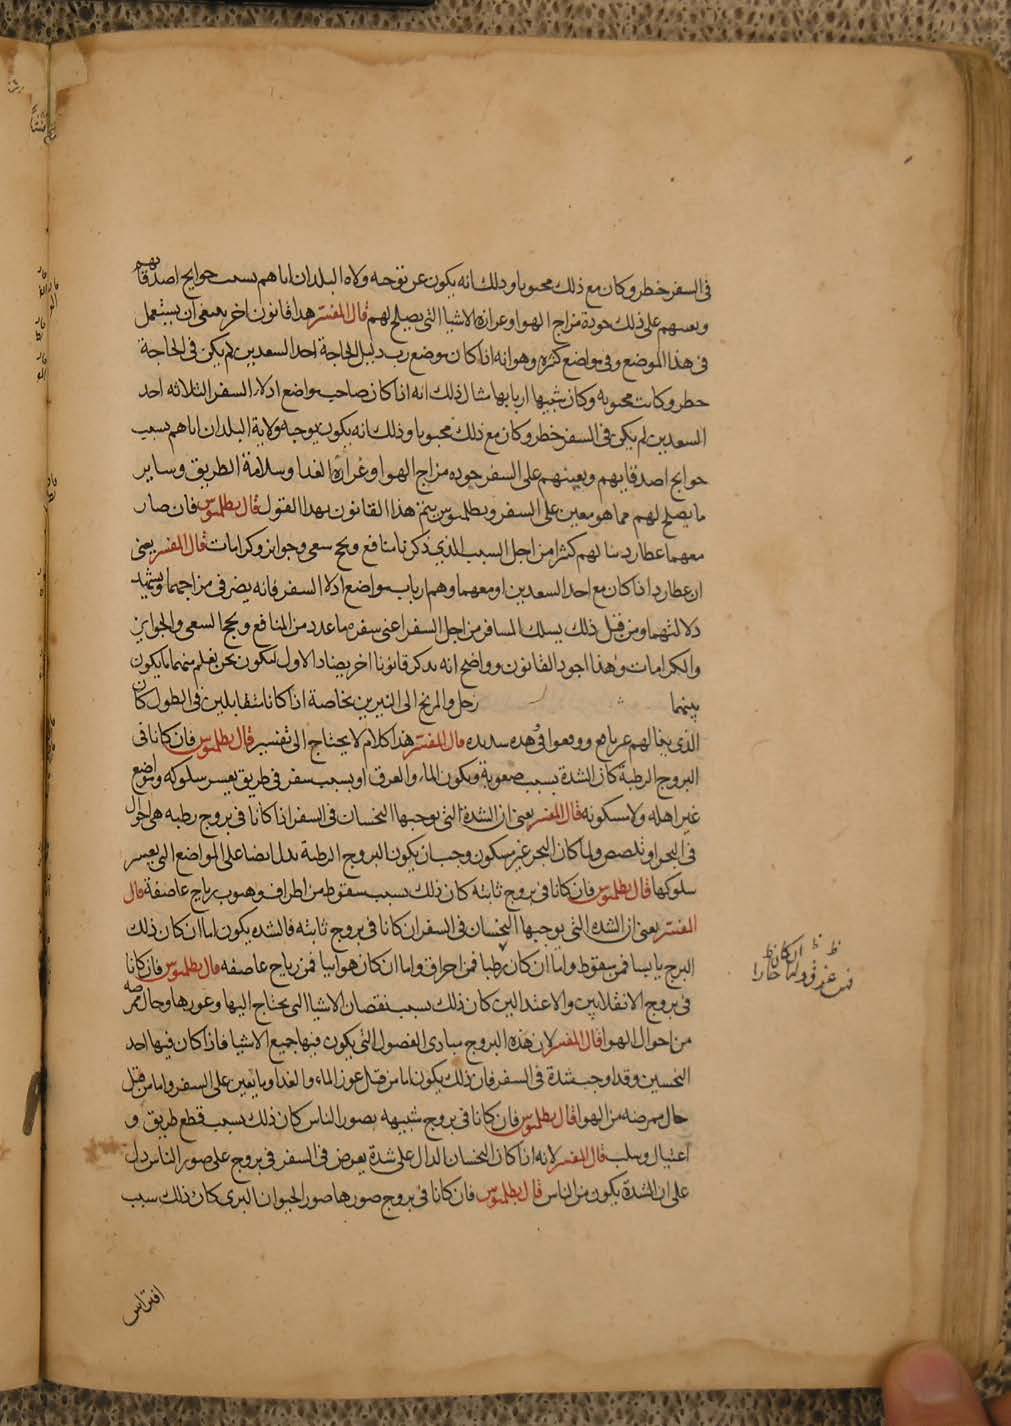 فى السفر خطر وكان مع ذلك محبوبا وذلك انه يكون عن توجه ولاه البلدان اياهم بسبب حوايج اصدقايهم
ويعينهم على ذلك جودة مزاج الهوا وغزارة الاشيا التى يصلح لهم قال المفسر هذا قانون اخر ينبغى ان يستعمل
فى هذا الموضع وفى مواضع كثيره وهو انه اذا كان موضع رب دليل الحاجة احد السعدين لم يكن فى الحاجة
خطر وكانت محبوبه وكان شبيها اربابها مثال ذلك انه اذا كان صاحب مواضع ادلاء السفر الثلاثه احد
السعدين لم يكن فى السفر خطر وكان مع ذلك محبوبا وذلك انه يكون بتوجه ولاية البلدان اياهم بسبب
حوايج اصدقايهم ويعينهم على السفر جوده مزاج الهوا وغزارة الغدا وسلامة الطريق وساير
ما يصلح لهم مما هو معين على السفر وبطلميوس يتمم هذا القانون بهذا القول قال بطلميوس فان صار
معهما عطارد نالهم كثيرا من اجل السبب الذى ذكرنا منافع ونجح سعى وجوايز وكرامات قال المفسر يعنى
ان عطارد اذا كان مع احد السعدين او معهما وهم ارباب مواضع ادلا السفر فانه يضر فى مزاجهما ويشهد
دلالتهما ومن قبل ذلك يسلك المسافر من اجل السفر اعنى سفره ما عدد من المنافع ونجح السعى والجوايز
والكرامات وهذا اجود القانون وواضح انه يذكر قانونا اخر يضاد الاول ليكون نحن نعلم منهما ما يكون
بينهما زحل والمريخ الى النيرين بخاصة اذا كانا متقابلين فى الطول كان
الذى ينالهم غير نافع ووقعوا فى هذه شديده قال المفسر هذا كلام لا يحتاج الى تفسير قال بطلميوس فان كانا فى
البروج الرطبة كان الشدة بسبب صعوبة ويكون الماء والغرق او بسبب سفر فى طريق يعسر سلوكه ومواضع
غير اهله ولا مسكونه قال المفسر يعنى ان الشدة التى يوجبها النحسان فى السفر اذا كانا فى بروج رطبه هى احوال
فى البحر او نلصص ولما كان البحر غير مسكون وجب ان يكون البروج الرطبة يدل ايضا على المواضع التى يعسر
سلوكها قال بطلميوس فان كانا فى بروج ثابتة كان ذلك بسبب سقوط من اطراف وهبوب رياح عاصفة قال
المفسر يعنى ان الشده التى يوجبها النحسان فى السفر ان كانا فى بروج ثابته فالشده يكون اما ان كان ذلك
البرج يابسا فمن سقوط واما ان كان رطبا فمن احراق واما ان كان هوابيا فمن رياح عاصفه قال بطلميوس فان كانا
فى بروج الانقلابين والاعتدالين كان ذلك بسبب نقصان الاشيا التى يحتاج اليها وعوزها وحال ممرضه
من احوال الهوا قال المفسر لان هذه البروج مبادى الفصول التى يكون فيها جميع الاشيا فاذا كان فيها احد
النحسين وقد اوجب شدة فى السفر فان ذلك يكون اما من قبل عوز الماء والغدا وما يعين على السفر واما من قبل
حال ممرضه من الهوا قال بطلميوس فان كانا فى بروج شبيهه بصور الناس كان ذلك بسبب قطع طريق و
اغتيال وسلب قال المفسر لانه اذا كان النحسان الدال على شدة يعرض فى السفر فى بروج على صور الناس دل
على ان الشدة يكون من الناس قال بطلميوس فان كانا فى بروج صورها صور الحيوان البرى كان ذلك سبب
افتراس